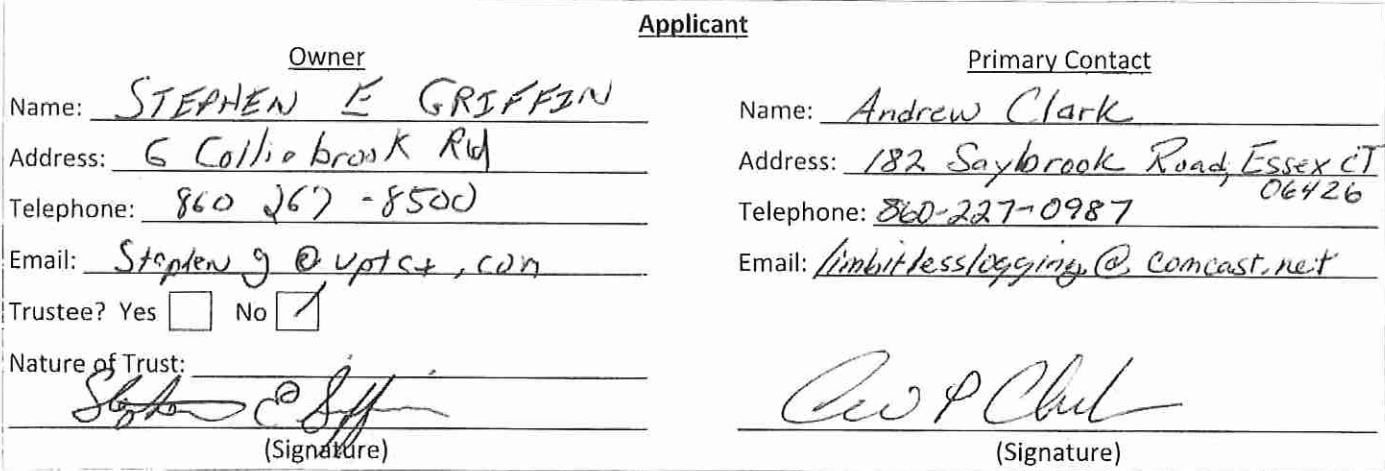 Applicant
Owner
Name: STEPHEN E GRIFFIN
Address: 6 Colliebrook Rd
Telephone: 860 267 - 8500
Email: Stephen g @ uptct, com
Trustee? Yes No
Nature of Trust:
(Signature)
Primary Contact
Name: Andrew Clark
Address: 182 Saybrook Road, Essex CT
06426
Telephone: 860-227-0987
Email: limbitlesslogging@comcast.net
(Signature)